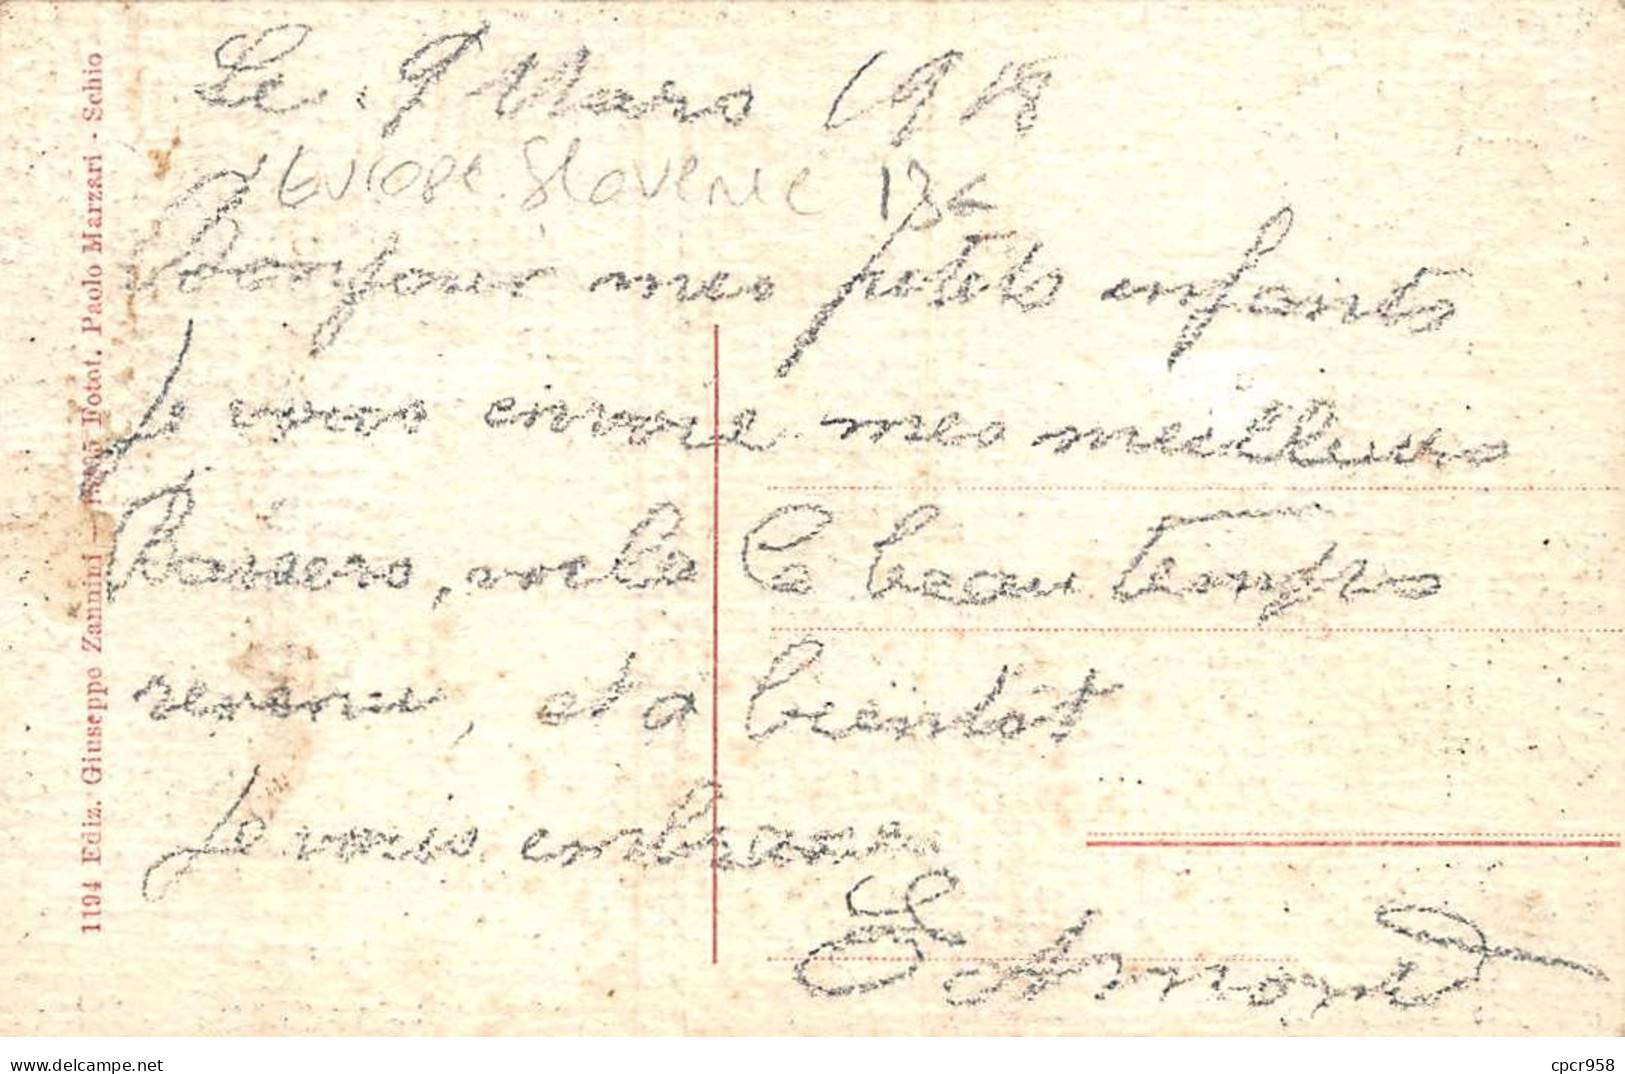 Le 9 Mars 1918
Europe. Slovenie 13€
Bonjour mes petits enfants
Je vous envoie mes meilleurs
Baisers, voila le beau temps
revenu, et a bientôt
Je vous embrasse
Edmond
1194 Ediz. Giuseppe Zannini - Fotot. Paolo Marzari - Schio
delcampe.net
cpcr958